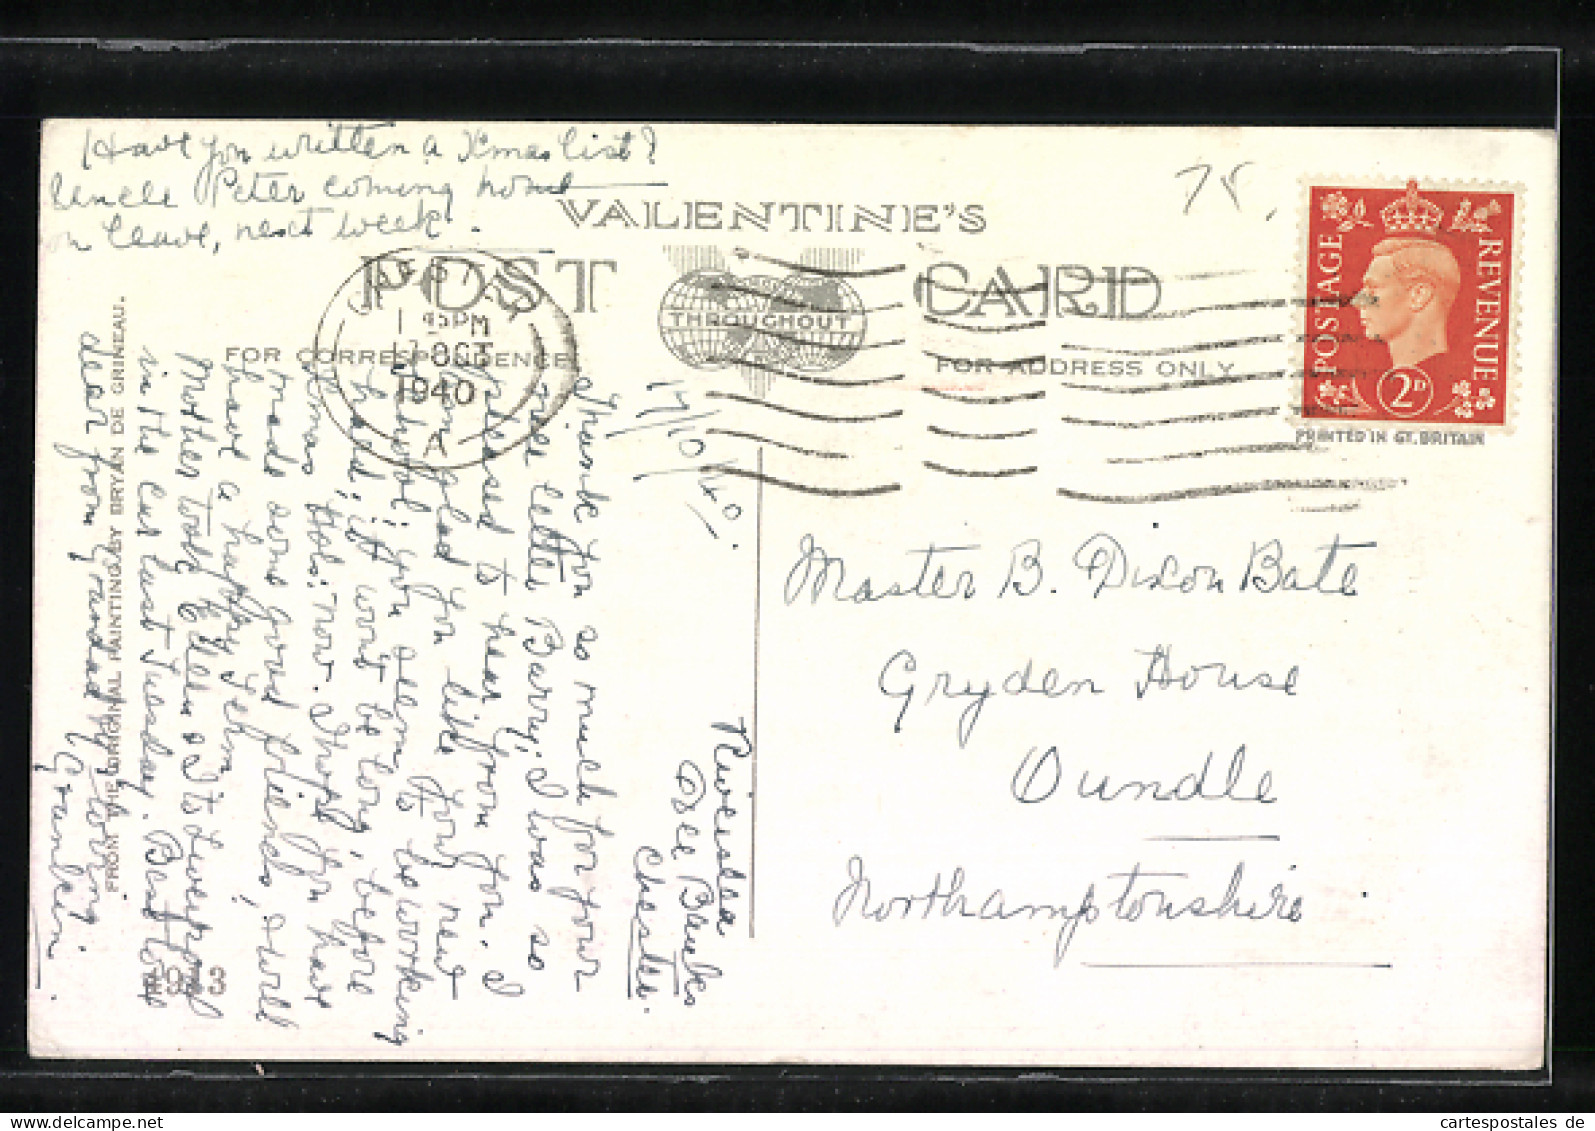 Have you written a Xmas list?
Uncle Peter coming home
on leave, next week.
75.
VALENTINE'S
POST CARD
THROUGHOUT
FOR CORRESPONDENCE
FOR ADDRESS ONLY
CHESTER
PM
17 OCT
1940
A
POSTAGE
REVENUE
2D
PRINTED IN GT. BRITAIN
Riverslea
Dee Banks
Chester.
17/10/40.
Thank you so much for your
nice letter Barry, I was so
pleased to hear from you. I
am glad you like your new
school; you seem to be working
hard; it won't be long, before
Xmas Hols: now. I hope you have
made some good friends, & will
have a happy term
Mother took Ellen & I to Liverpool
in the car last Tuesday. Best love
dear from Grandad & loving
Grannkin.
FROM THE ORIGINAL PAINTING BY BRYAN DE GRINEAU.
Master B. Dixon Bate
Gryden House
Oundle
Northamptonshire
cartespostales de